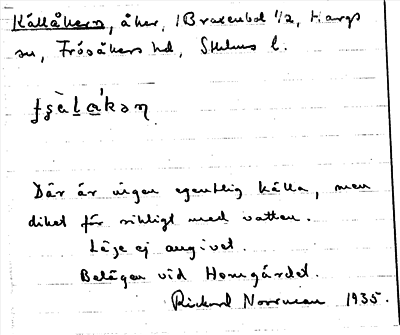 Källåkern, åker, i Braxenbol 1/2, Hargs
sn, Frösåkers hd, Sthlms l.
Där är ingen egentlig källa, men
diket för rikligt med vatten.
Läge ej angivet.
Belägen vid Hemgärdet.
Rickard Norrman 1935.